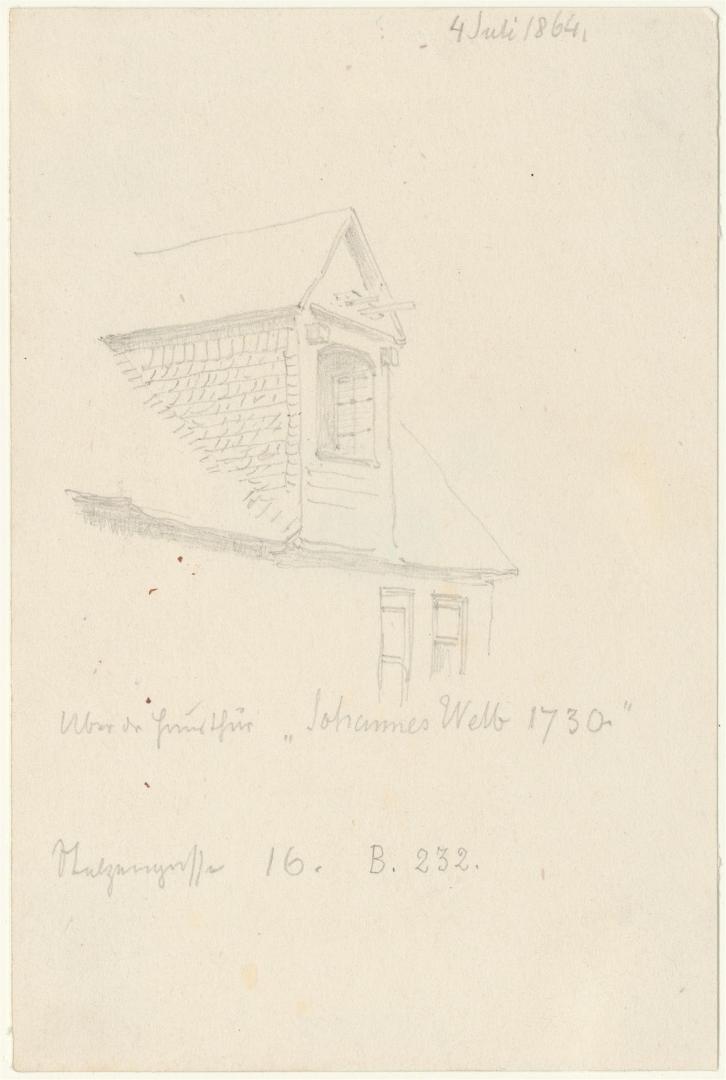 4 Juli 1864.
Über der Hausthür „Johannes Welb 1730."
Stelzengasse 16. B. 232.